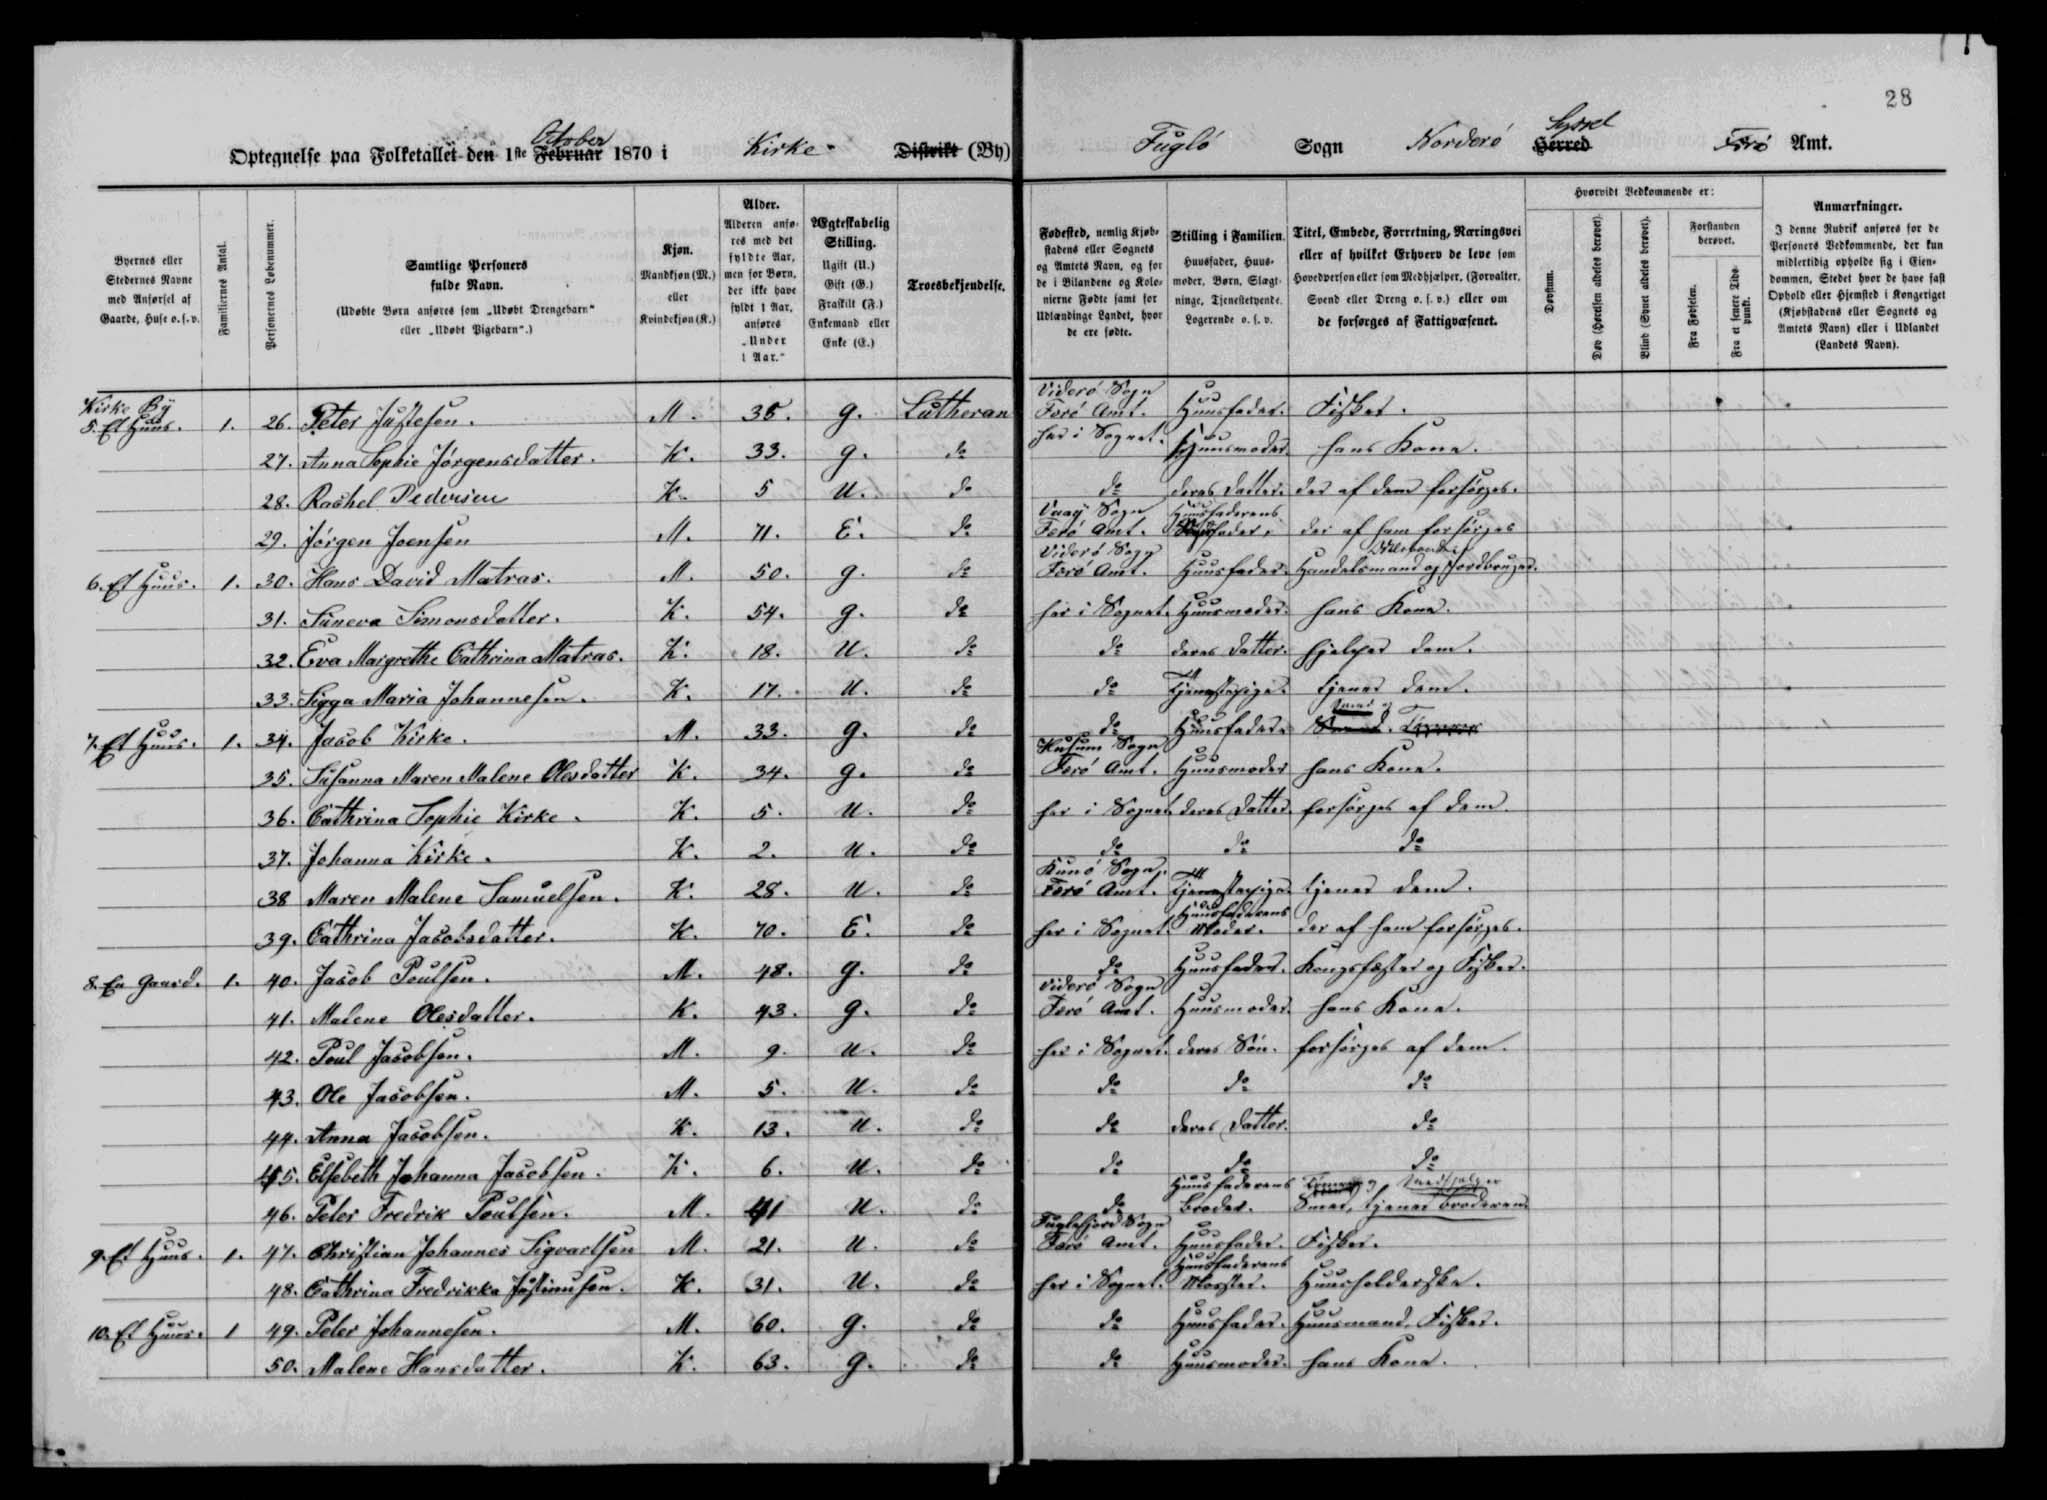 28
Optegnelse paa Folketallet den 1ste Februar October 1870 i Kirke- Distrikt (By) Fuglö Sogn Norderö Herred Syssel Færö Amt.
Byernes eller Stedernes Navne med Anførsel af Gaarde, Huse o. s. v.
Familiernes Antal.
Personernes Løbenummer.
Samtlige Personers fulde Navn. (Udøbte Børn anføres som „Udøbt Drengebarn“ eller „Udøbt Pigebarn“.)
Kjøn. Mandkjøn (M.) eller Kvindekjøn (K.)
Alder. Alderen anføres med det fyldte Aar, men for Børn, der ikke have fyldt 1 Aar, anføres „Under 1 Aar.“
Ægteskabelig Stilling. Ugift (U.) Gift (G.) Fraskilt (F.) Enkemand eller Enke (E.)
Troesbekjendelse.
Fødested, nemlig Kjøbstadens eller Sognets og Amtets Navn, og for de i Bilandene og Kolonierne Fødte samt for Udlændinge Landet, hvor de ere fødte.
Stilling i Familien. Huusfader, Huusmoder, Børn, Slægtninge, Tjenestetyende, Logerende o. s. v.
Titel, Embede, Forretning, Næringsvei eller af hvilket Erhverv de leve som Hovedperson eller som Medhjælper, (Forvalter, Svend eller Dreng o. s. v.) eller om de forsørges af Fattigvæsenet.
Hvorvidt Vedkommende er:
Døvstum.
Døv (Hørelsen aldeles berøvet).
Blind (Synet aldeles berøvet).
Forstanden berøvet.
Fra Fødselen.
Fra et senere Tidspunkt.
Anmærkninger. I denne Rubrik anføres for de Personers Vedkommende, der kun midlertidig opholde sig i Eiendommen, Stedet hvor de have fast Ophold eller Hjemsted i Kongeriget (Kjøbstadens eller Sognets og Amtets Navn) eller i Udlandet (Landets Navn).
Kirke By
5. Et Huus. 1. 26. Peter Justesen. M. 35. g. Lutheran Viderö Sogn Færö Amt. Huusfader. Fisker.
27. Anna Sophie Jörgensdatter. K. 33. g. do her i Sognet. Huusmoder. hans Kone.
28. Rachel Pedersen K. 5 U. do do deres Datter. der af dem forsörges.
29. Jörgen Joensen M. 71. E. do Vaag Sogn Færö Amt. Huusfaderens der af ham forsörges
6. Et Huus. 1. 30. Hans David Matras. M. 50. g. do Viderö Sogn Færö Amt. Huusfader. Handelsmand og Jordbruger.
31. Suneva Simonsdatter. K. 54. g. do her i Sognet. Huusmoder. hans Kone.
32. Eva Margrethe Cathrina Matras. K. 18. U. do do deres Datter. hjelper dem.
33. Sigga Maria Johannesen. K. 17. U. do do Tjenestepige. tjener dem.
7. Et Huus. 1. 34. Jacob Kirke. M. 33. g. do do Huusfader.
35. Susanna Maren Malene Olesdatter K. 34. g. do Husum Sogn Færö Amt. Huusmoder hans Kone.
36. Cathrina Sophie Kirke. K. 5. U. do her i Sognet. deres Datter. forsörges af dem
37. Johanna Kirke. K. 2. U. do do do do
38 Maren Malene Samuelsen. K. 28. U. do Kunö Sogn, Færö Amt. Tjenestepige. tjener dem.
39. Cathrina Jacobsdatter. K. 70. E. do her i Sognet. Huusfaderens Moder. der af ham forsörges.
8. En Gaard. 1. 40. Jacob Poulsen. M. 48. g. do do Huusfader. Kongsfæster og Fisker.
41. Malene Olesdatter. K. 43. g. do Viderö Sogn Færö Amt. Huusmoder. hans Kone.
42. Poul Jacobsen. M. 9. U. do her i Sognet. deres Sön. forsörges af dem.
43. Ole Jacobsen. M. 5. U. do do do do
44. Anna Jacobsen. K. 13. U. do do deres Datter. do
45. Elsebeth Johanna Jacobsen. K. 6. U. do do do do
46. Peter Fredrik Poulsen. M. 41 U. do do Huusfaderens Broder. tjener broderen
9. Et Huus. 1. 47. Christian Johannes Sigvartsen M. 21. U. do Fuglefjord Sogn Færö Amt. Huusfader. Fisker.
48. Cathrina Fredrikka Justinusen. K. 31. U. do her i Sognet. Huusfaderens Huusholderske.
10. Et Huus. 1 49. Peter Johannesen. M. 60. g. do do Huusfader. Huusmand, Fisker.
50. Malene Hansdatter. K. 63. g. do do Huusmoder. hans Kone.